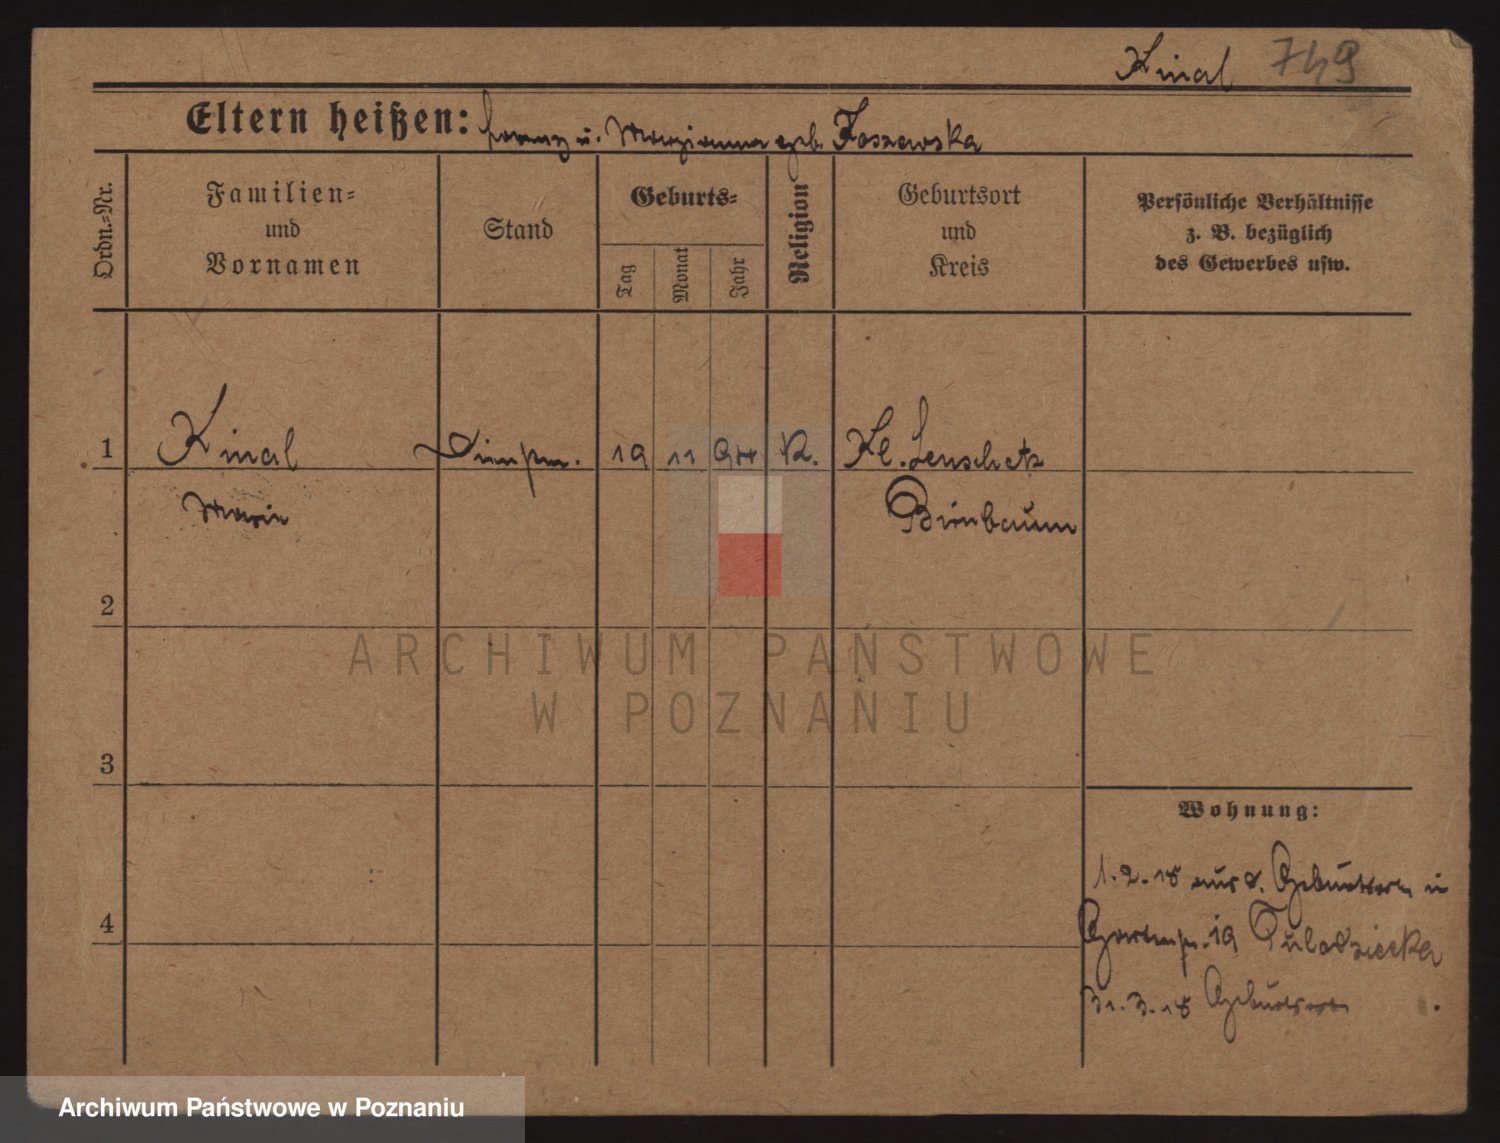 Kinal 749
Eltern heißen: Franz u. Marianna geb. Koszewska
Ordn.=Nr.
Familien=
und
Vornamen
Stand
Geburts=
Tag
Monat
Jahr
Religion
Geburtsort
und
Kreis
Persönliche Verhältnisse
z. B. bezüglich
des Gewerbes usw.
1 Kinal 19 11 94 K. Kl. Lenschetz
Marie Birnbaum
2
ARCHIWUM PAŃSTWOWE
W POZNANIU
3
Wohnung:
1.2.18 aus d. Geburtsort in
4
Gartenstr. 19 Tulodziecka
31.3.18 Geburtsort
Archiwum Państwowe w Poznaniu